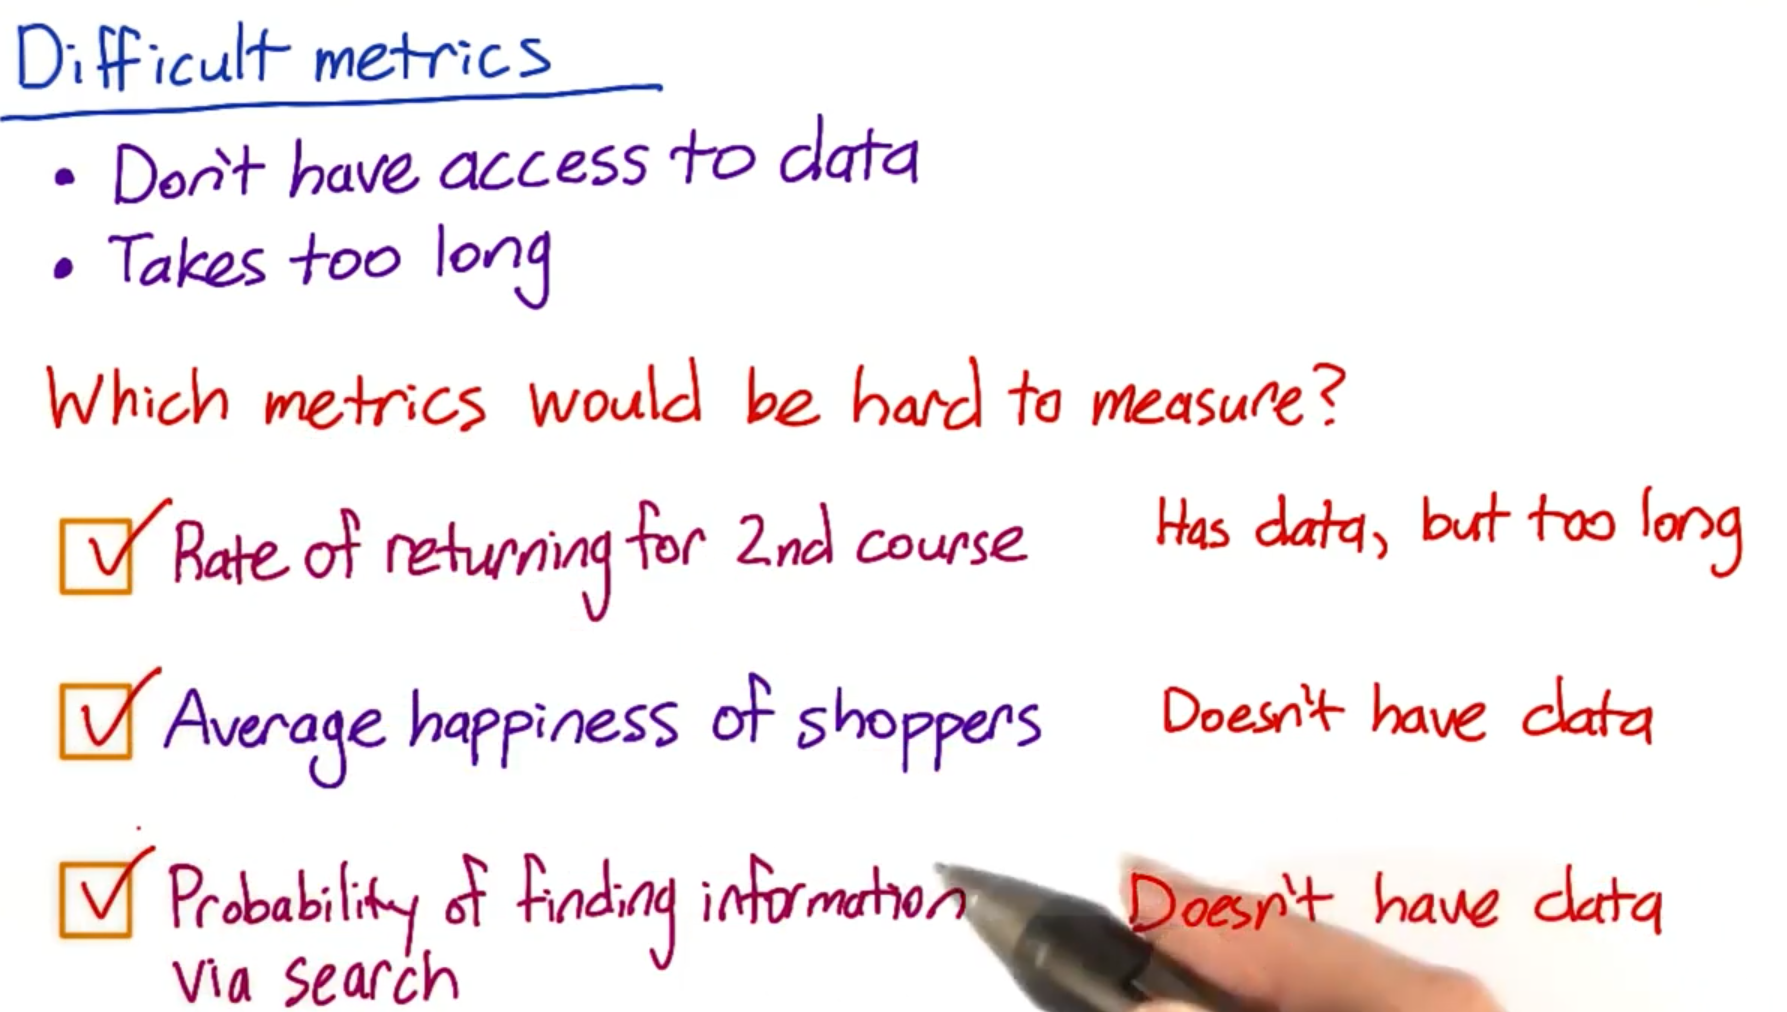 Difficult metrics
• Don't have access to data
• Takes too long
Which metrics would be hard to measure?
Rate of returning for 2nd course
Has data, but too long
Average happiness of shoppers
Doesn't have data
Probability of finding information
via search
Doesn't have data